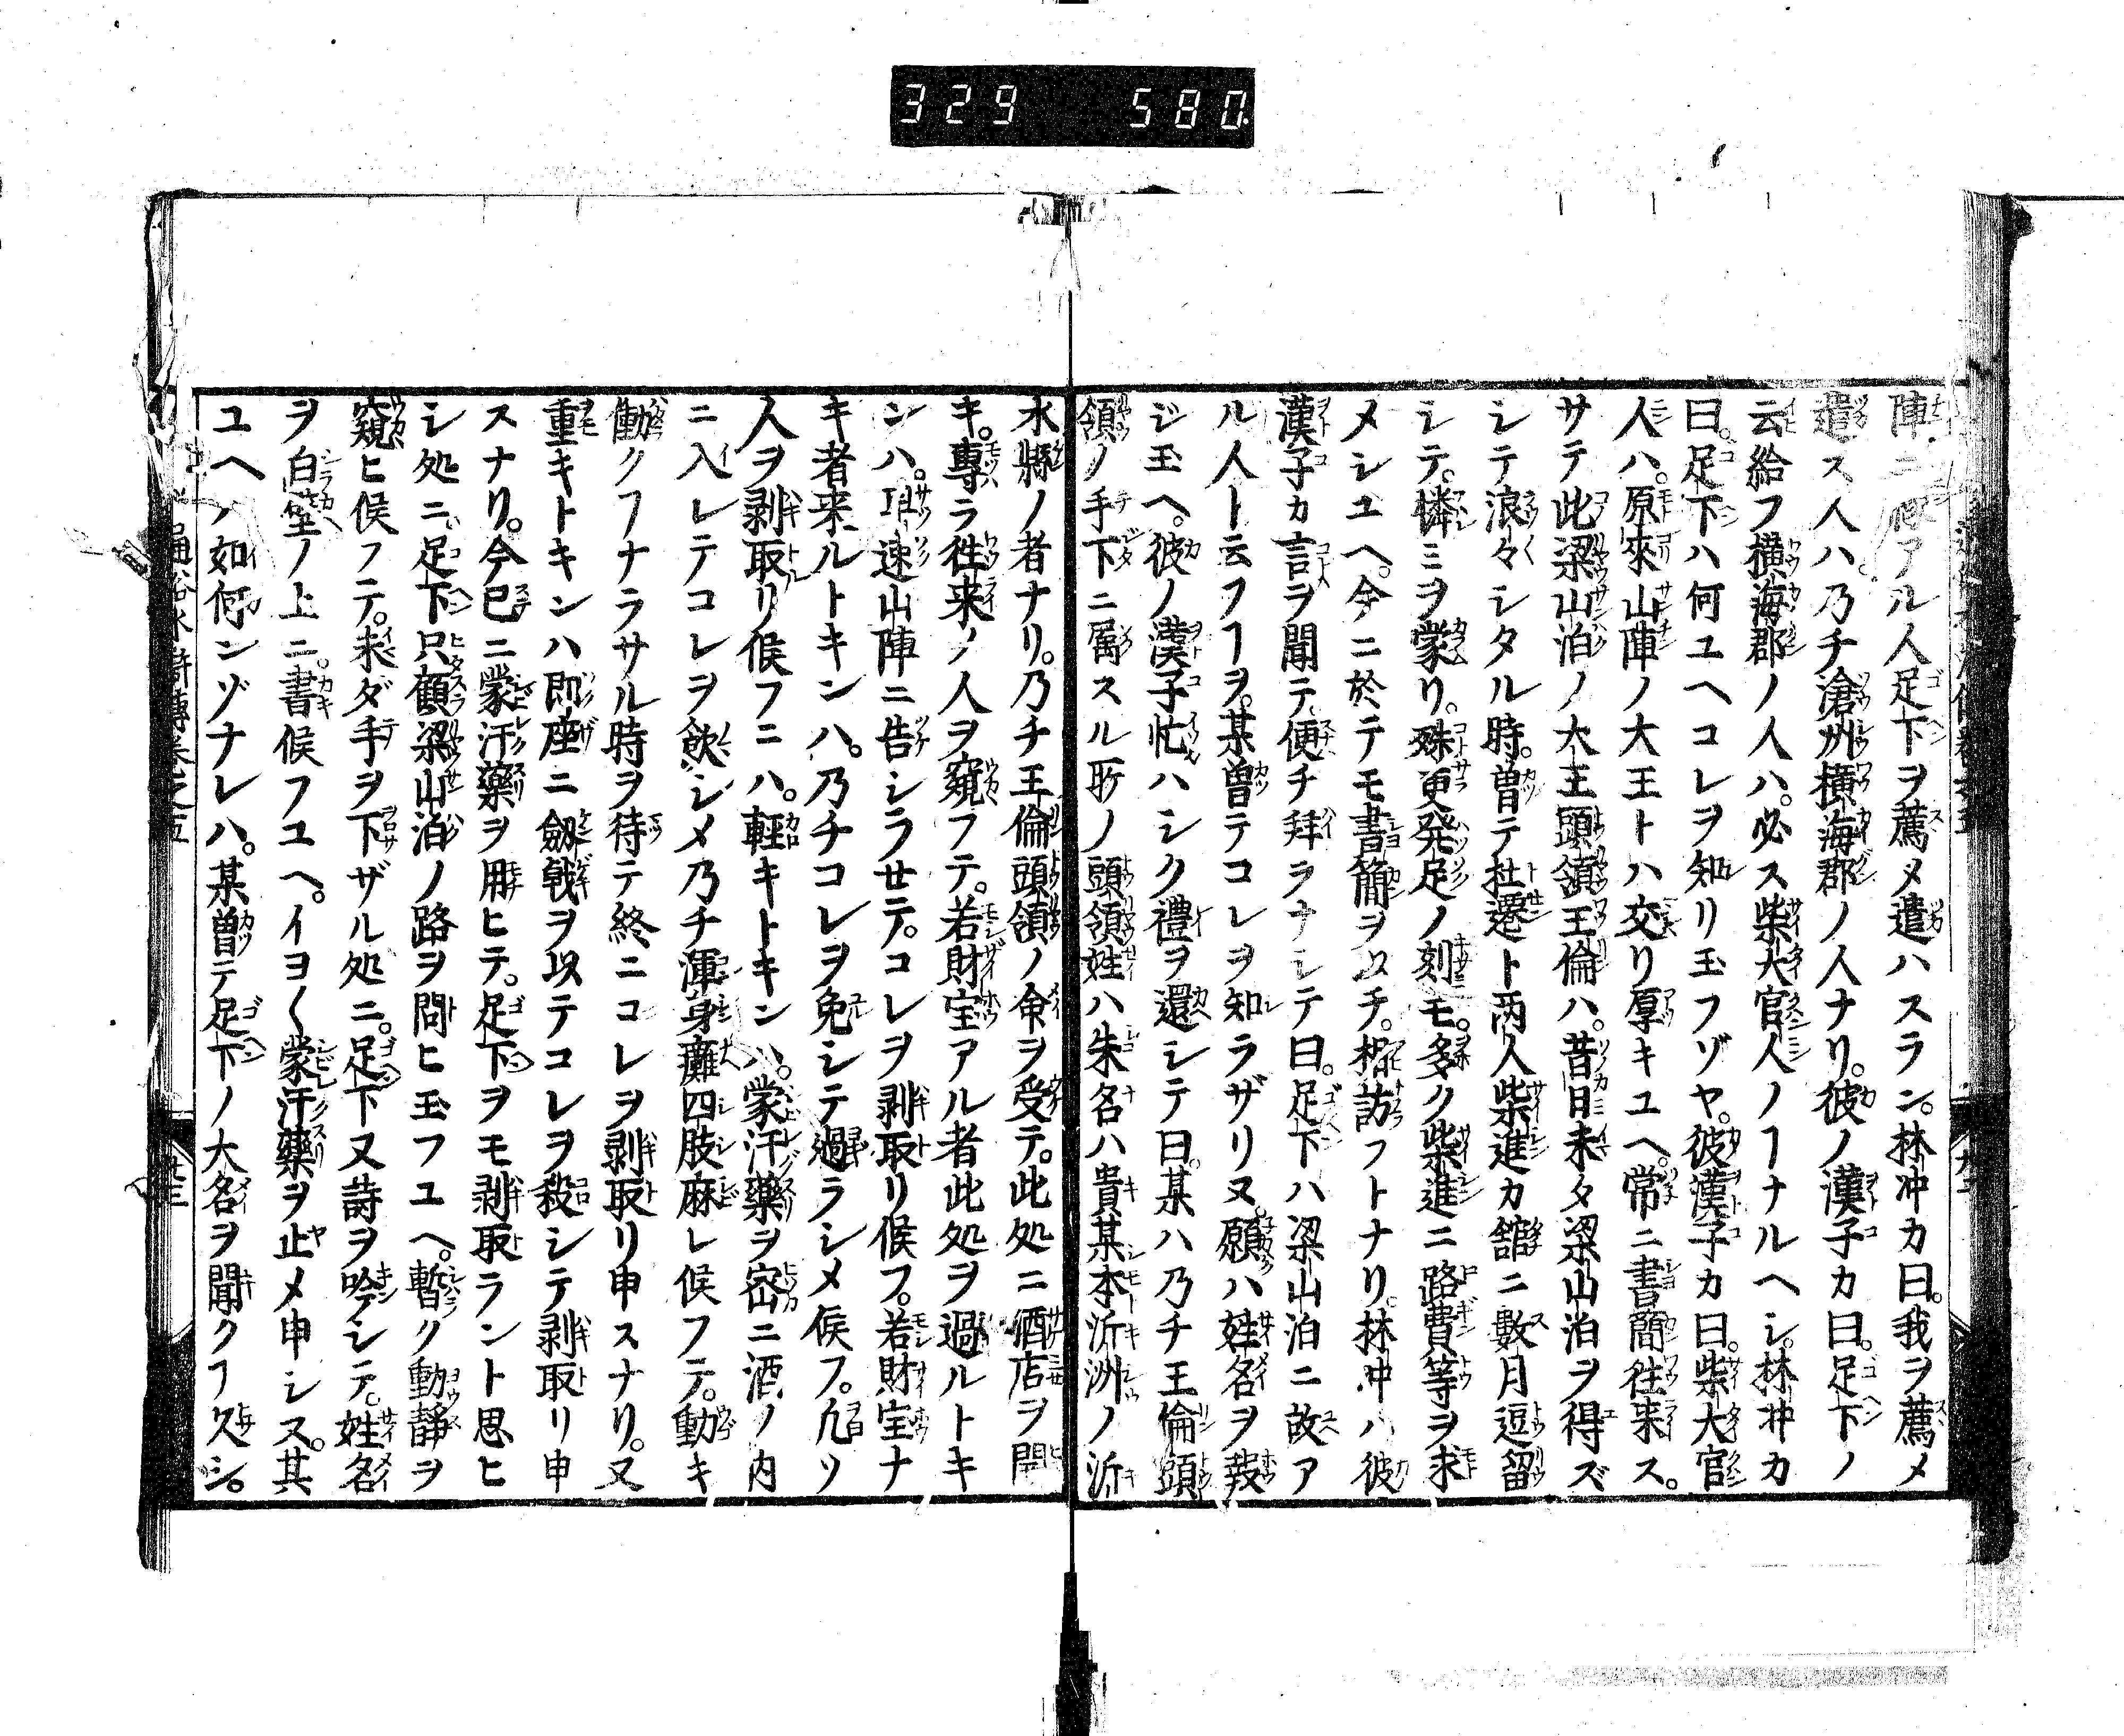 329 580
陣ニ アル人足下ヲ薦メ遣ハスラン。林冲カ曰。我ヲ薦メ
遣ス人ハ。乃チ滄州横海郡ノ人ナリ。彼ノ漢子カ曰。足下ノ
云給フ横海郡ノ人ハ。必ス柴大官人ノヿナルヘシ。林冲カ
曰。足下ハ何ユヘコレヲ知リ玉フゾヤ。彼漢子カ曰。柴大官
人ハ。原來山陣ノ大王トハ交リ厚キユヘ。常ニ書簡往来ス。
サテ此梁山泊ノ大王頭領王倫ハ。昔日未タ梁山泊ヲ得ズ
シテ浪々シタル時。曽テ杜遷ト两人柴進カ舘ニ數月逗留
シテ。憐ミヲ蒙リ。殊更発足ノ刻モ。多ク柴進ニ路費等ヲ求
メシユヘ。今ニ於テモ書簡ヲ以チ。相訪フトナリ。林冲ハ彼
漢子カ言ヲ聞テ。便チ拜ヲナシテ曰。足下ハ梁山泊ニ故ア
ル人ト云フヿヲ。某曽テコレヲ知ラザリヌ。願ハ姓名ヲ報
ジ玉ヘ。彼ノ漢子忙ハシク禮ヲ還シテ曰。某ハ乃チ王倫頭
領ノ手下ニ属スル所ノ頭領姓ハ朱名ハ貴某本沂洲ノ沂
水縣ノ者ナリ。乃チ王倫頭領ノ命ヲ受テ。此処ニ酒店ヲ開
キ。專ラ徃来ノ人ヲ窺フテ。若財宝アル者此処ヲ過ルトキ
ンハ。早速山陣ニ告シラせテ。コレヲ剥取リ候フ。若財宝ナ
キ者来ルトキンハ。乃チコレヲ免シテ過ラシメ候フ。凢ソ
人ヲ剥取リ候フニハ。輕キトキンハ。蒙汗藥ヲ密ニ酒ノ内
ニ入レテコレヲ飲シメ乃チ渾身癱四肢麻レ候フテ。動キ
働クヿナラサル時ヲ待テ終ニコレヲ剥取リ申スナリ。又
重キトキンハ即座ニ劔戟ヲ以テコレヲ殺シテ剥取リ申
スナリ。今已ニ蒙汗藥ヲ用ヒテ。足下ヲモ剥取ラント思ヒ
シ処ニ。足下只顧梁山泊ノ路ヲ問ヒ玉フユヘ。暫ク動靜ヲ
窺ヒ候フテ。未ダ手ヲ下ザル処ニ。足下又詩ヲ吟シテ。姓名
ヲ白堊ノ上ニ。書候フユヘ。イヨ〱蒙汗藥ヲ止メ申シヌ。其
ユヘノ如何ンゾナレハ。某曽テ足下ノ大名ヲ聞クヿ久シ。
通俗水滸傳卷之五
廿三